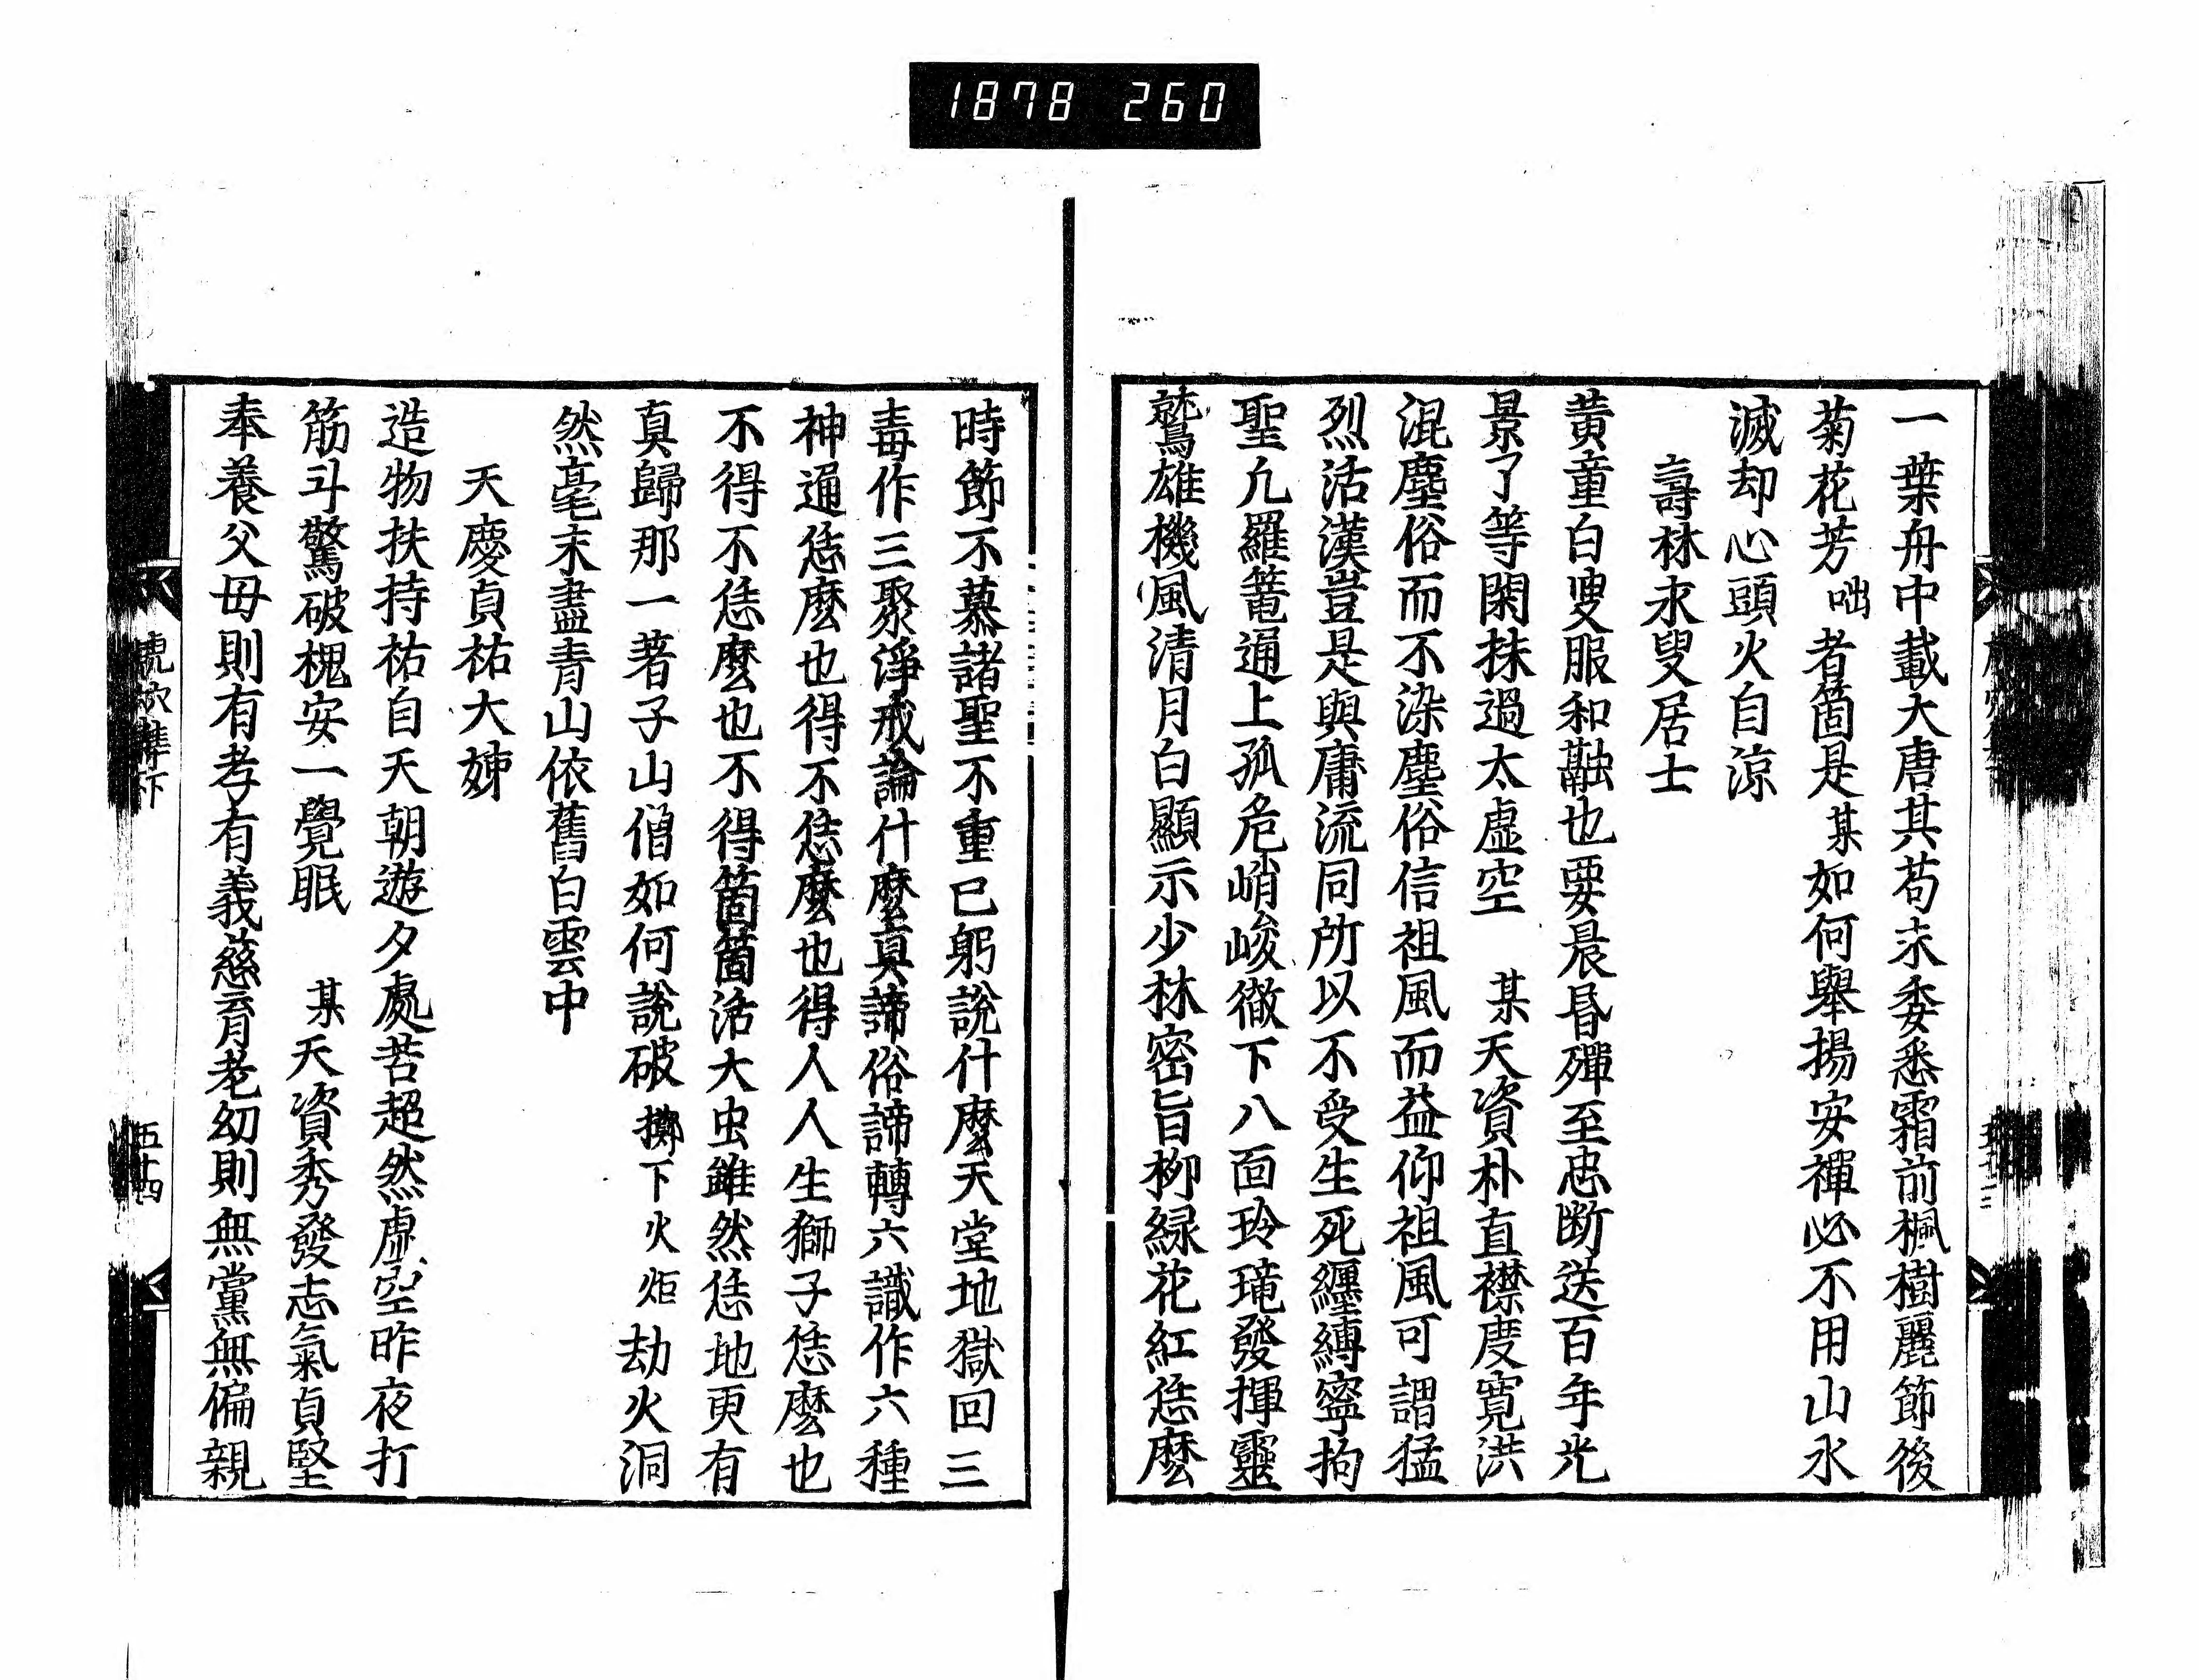 1878 260
一葉舟中載大唐其苟未委悉霜前楓樹麗節後
菊花芳咄者箇是某如何舉揚安禪必不用山水
滅却心頭火自涼
壽林永叟居士
黃童白叟服和融也要晨昏殫至忠断送百年光
景了等閑抹過太虛空 某天資朴直襟度寬洪
混塵俗而不染塵俗信祖風而益仰祖風可謂猛
烈活漢豈是與庸流同所以不受生死纏縛寧拘
聖凡羅篭通上孤危峭峻徹下八面玲瓏發揮靈
鷲雄機風清月白顯示少林密旨柳緑花紅恁麼
時節不慕諸聖不重已躬說什麼天堂地獄回三
毒作三聚淨戒論什麼真諦俗諦轉六識作六種
神通恁麼也得不恁麼也得人人生獅子恁麼也
不得不恁麼也不得箇箇活大虫雖然恁地更有
真歸那一著子山僧如何說破擲下火炬劫火洞
然毫末盡青山依舊白雲中
天慶貞祐大姊
造物扶持祐自天朝遊夕處苦超然虛空昨夜打
筋斗驚破槐安一覺眠 某天資秀發志氣貞堅
奉養父母則有孝有義慈育老幼則無黨無偏親
五十四